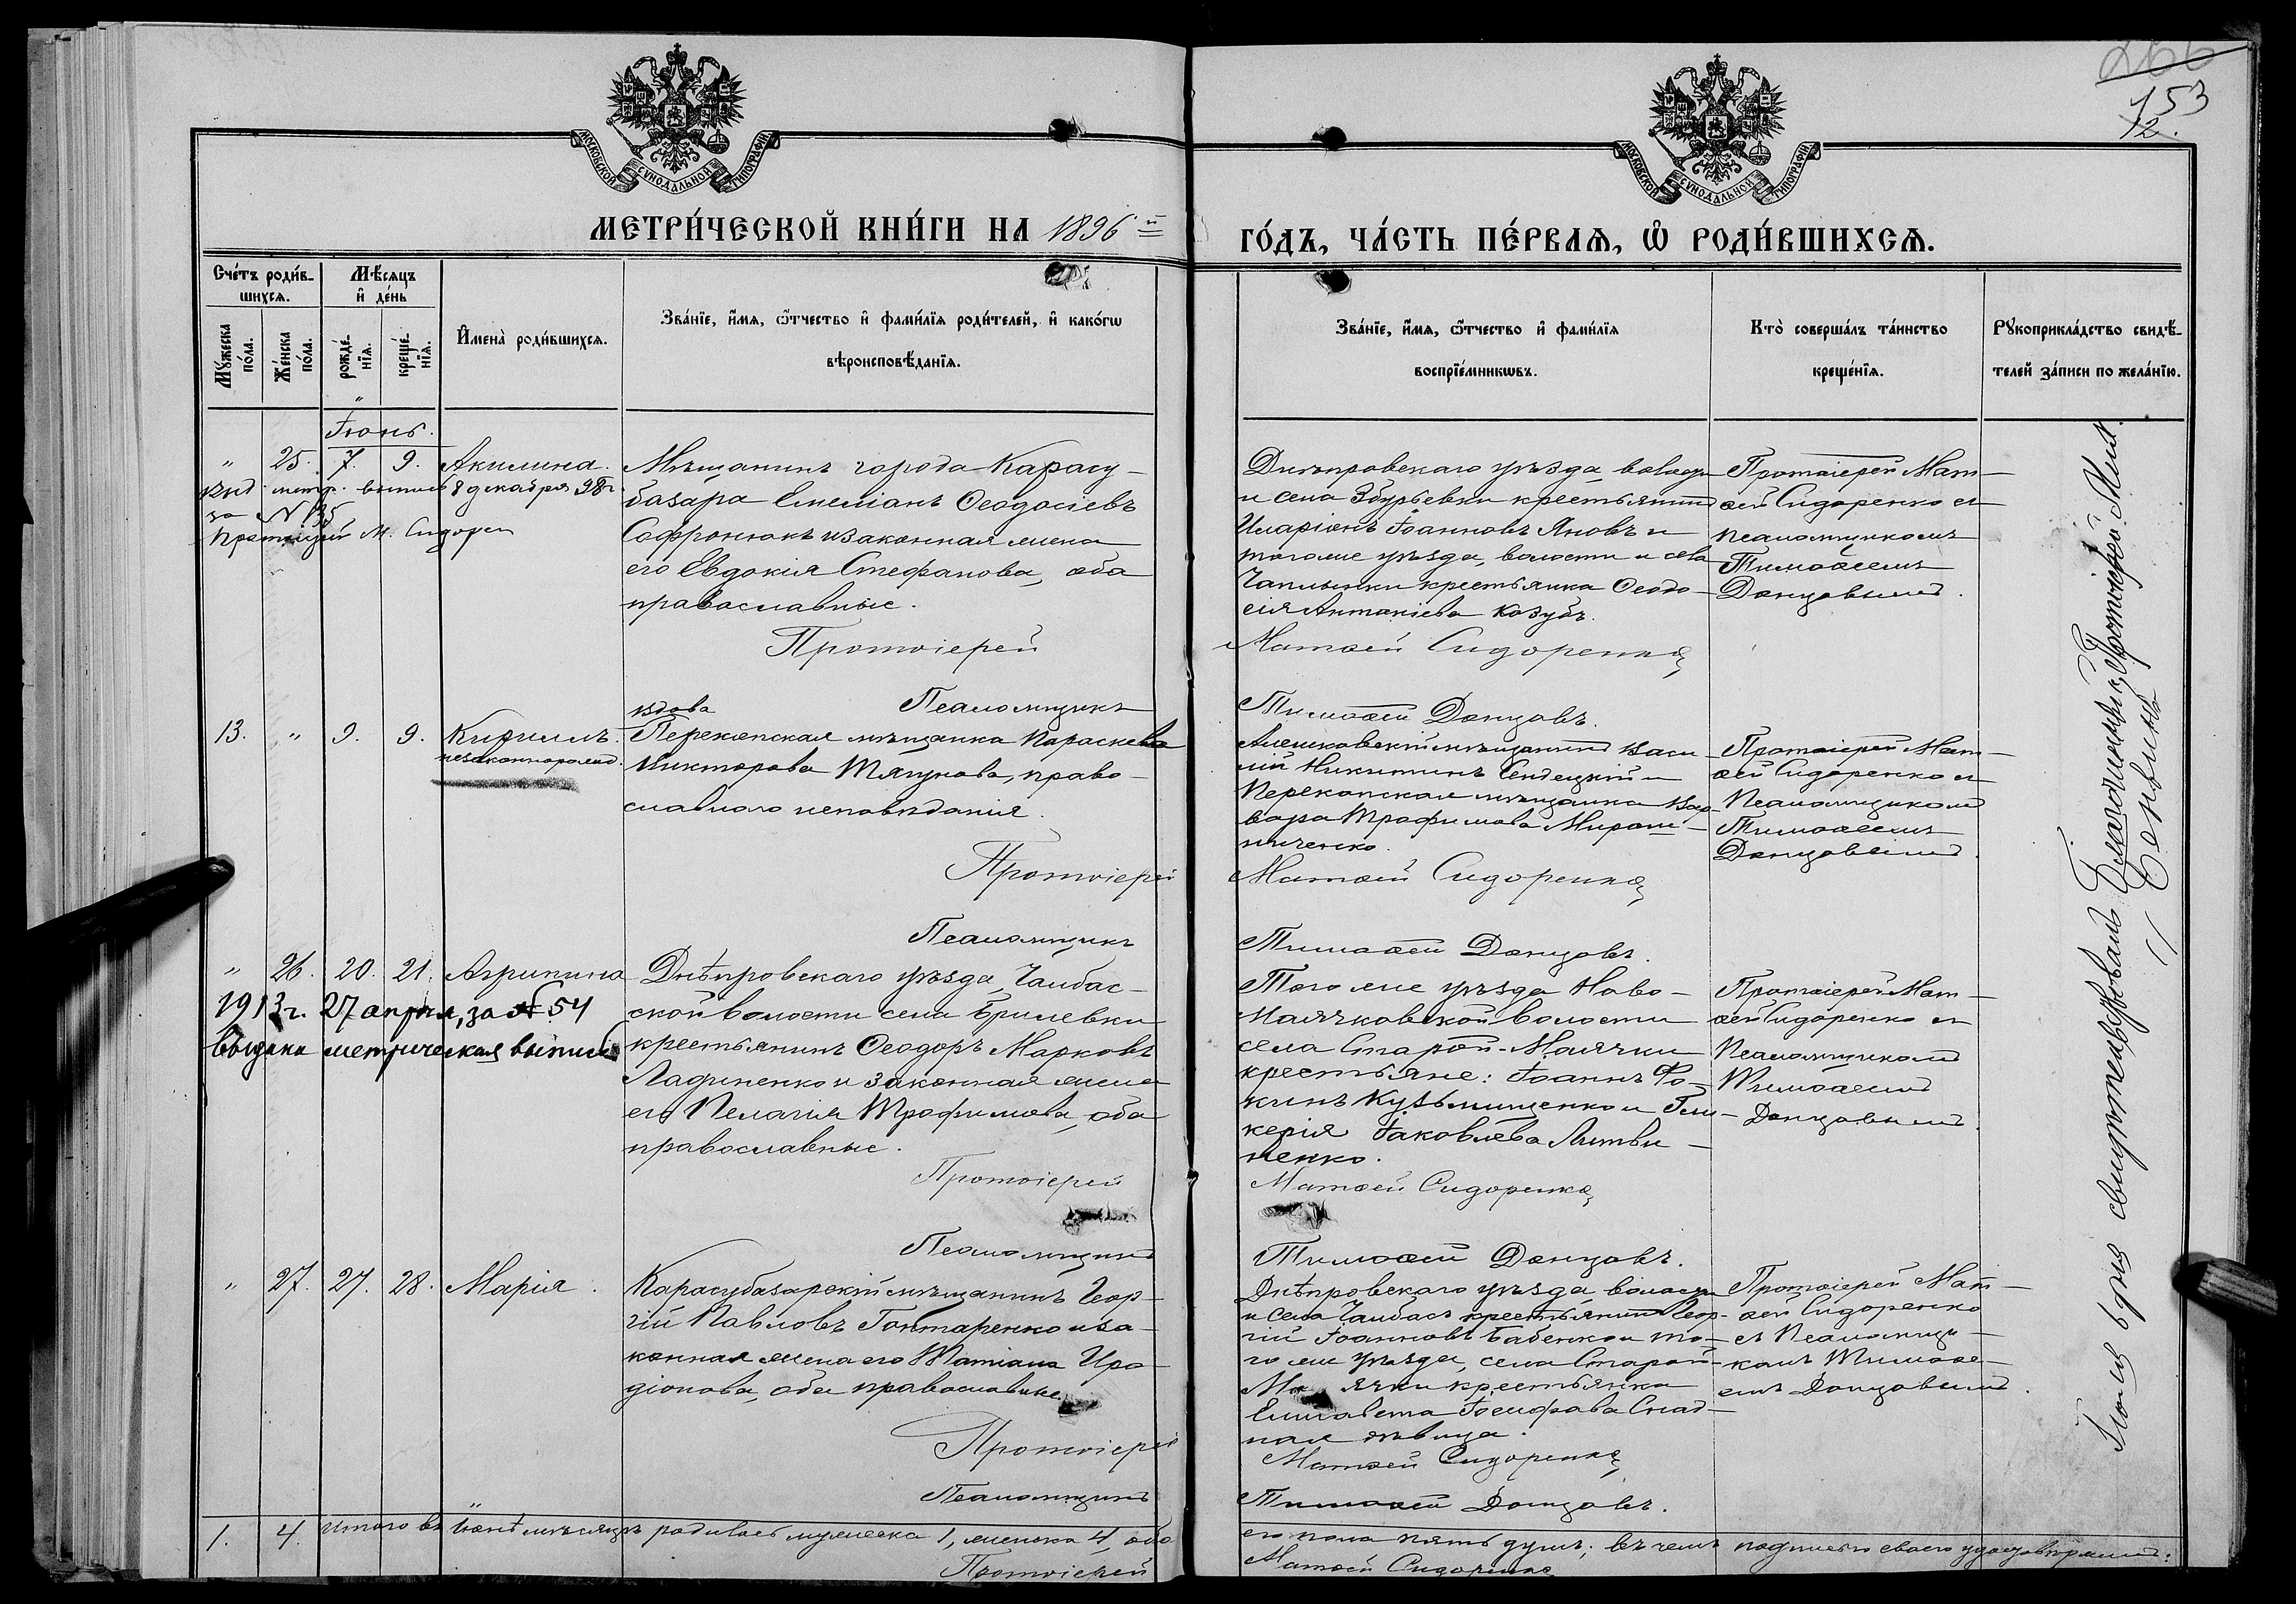 266
153
12.
МОСКОВСКОЙ СѴНОДАЛЬНОЙ ТИПОГРАФІИ
МОСКОВСКОЙ СѴНОДАЛЬНОЙ ТИПОГРАФІИ
МЕТРИ́ЧЕСКОЙ КНИ́ГИ НА 1896й
ГО́ДЪ, ЧА́СТЬ ПЕ́РВАѦ, Ѡ҆ РОДИ́ВШИХСѦ.
Сче́тъ роди́в-
шихсѧ.
Мѣ́сѧцъ
и҆ де́нь
Мꙋ́жеска по́ла.
Же́нска по́ла.
рожде́-нїѧ.
креще́-нїѧ.
И҆мена̀ роди́вшихсѧ.
Зва́нїе, и҆́мѧ, ѻ҆́тчество и҆ фами́лїѧ роди́телей, и҆ како́гѡ
вѣроисповѣ́данїѧ.
Зва́нїе, и҆́мѧ, ѻ҆́тчество и҆ фами́лїѧ
воспрїе́мникѡвъ.
Кто̀ соверша́лъ та́инство
креще́нїѧ.
Рꙋкоприкла́дство свидѣ́-
телей за́писи по жела́нїю.
Іюнь.
" 25. 7. 9. Акилина.
метр. выпись 8 декабря 98 г.
за N 135
Протоіерей М. Сидорен
Мѣщанинъ города Карасу-
базара Емеліанъ Ѳеодосіевъ
Софронюкъ и законная жена
его Евдокія Стефанова, оба
православные.
Протоіерей
Псаломщикъ
Днѣпровскаго уѣзда, волости
и села Збурьевки крестьянинъ
Иларіонъ Іоанновъ Яновъ и
тогоже уѣзда, волости и села
Чаплынки крестьянка Ѳеодо-
сія Антоніева Козубъ.
Матѳей Сидоренко
Тимоѳей Донцовъ.
Протоіерей Мат-
ѳей Сидоренко съ
псаломщикомъ
Тимоѳеемъ
Донцовымъ.
13. " 9. 9. Кириллъ.
незаконнорожд.
вдова
Перекопская мѣщанка Параскева
Викторова Тягунова, право-
славнаго исповѣданія.
Протоіерей
Псаломщикъ
Алешковскій мѣщанинъ Васи-
лій Никитинъ Сендецкій и
Перекопская мѣщанка Вар-
вара Трофимова Мирош-
ниченко.
Матѳей Сидоренко
Тимоѳей Донцовъ.
Протоіерей Мат-
ѳей Сидоренко съ
Псаломщикомъ
Тимоѳеемъ
Донцовымъ.
" 26. 20. 21. Агрипина
1913 г. 27 апрѣля, за № 54
выдана метрическая выпись
Днѣпровскаго уѣзда, Чалбас-
ской волости села Брилевки
крестьянинъ Ѳеодоръ Марковъ
Ладиненко и законная жена
его Пелагія Трофимова, оба
православные.
Протоіерей
Псаломщикъ
Того же уѣзда Ново-
Маячковской волости
села Старой-Маячки
крестьяне: Іоаннъ Фо-
кинъ Кузьмищенко и Гли-
керія Іаковлева Литви-
ненко.
Матѳей Сидоренко
Тимоѳей Донцовъ.
Протоіерей Мат-
ѳей Сидоренко съ
Псаломщикомъ
Тимоѳеемъ
Донцовымъ.
" 27. 27. 28. Марія.
Карасубазарскій мѣщанинъ Геор-
гій Павловъ Гонтаренко и за-
конная жена его Татіана Иро-
діонова, оба православные.
Протоіерей
Псаломщикъ
Днѣпровскаго уѣзда волости
и села Чалбасъ крестьянинъ Геор-
гій Іоанновъ Бабенко и то-
го же уѣзда, села Старой-
Маячки крестьянка
Елисавета Іосифова Слад-
кая дѣвица.
Матѳей Сидоренко
Тимоѳей Донцовъ.
Протоіерей Мат-
ѳей Сидоренко
съ Псаломщи-
комъ Тимоѳе-
емъ Донцовымъ.
1. 4. Итого въ Іюнѣ мѣсяцѣ родилось мужеска 1, женска 4, обо
его пола пять душъ; въ чемъ подписью своею удостовѣряемъ:
Протоіерей
Матѳей Сидоренко
свидетельствовалъ Благочинный, Протоіерей Мих.